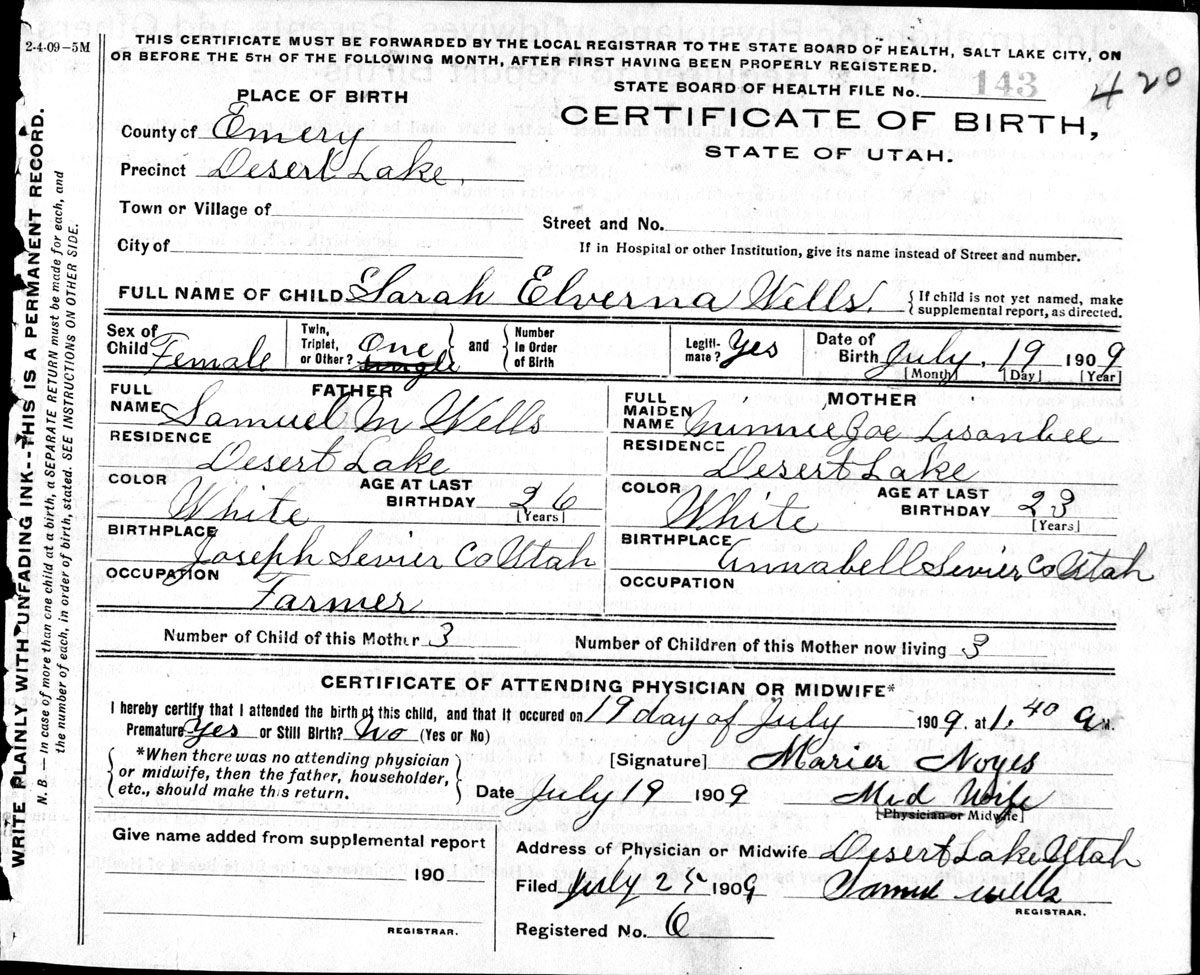 2-4-09-5M
THIS CERTIFICATE MUST BE FORWARDED BY THE LOCAL REGISTRAR TO THE STATE BOARD OF HEALTH, SALT LAKE CITY, ON
OR BEFORE THE 5TH OF THE FOLLOWING MONTH, AFTER FIRST HAVING BEEN PROPERLY REGISTERED.
STATE BOARD OF HEALTH FILE No. 143
420
PLACE OF BIRTH
CERTIFICATE OF BIRTH,
STATE OF UTAH.
County of Emery
Precinct Desert Lake,
Town or Village of
Street and No.
City of
If in Hospital or other Institution, give its name instead of Street and number.
FULL NAME OF CHILD Sarah Elverna Wells. { If child is not yet named, make supplemental report, as directed.
Sex of Child Female
Twin, Triplet, or Other? One single } and { Number in Order of Birth
Legiti-mate? Yes
Date of Birth July, 19 1909
[Month] [Day] [Year]
FATHER
FULL NAME Samuel M Wells
RESIDENCE
Desert Lake
COLOR White AGE AT LAST BIRTHDAY 26
[Years]
BIRTHPLACE
Joseph Sevier Co Utah
OCCUPATION
Farmer
MOTHER
FULL MAIDEN NAME Minnie Zoe Lisonbee
RESIDENCE
Desert Lake
COLOR White AGE AT LAST BIRTHDAY 23
[Years]
BIRTHPLACE
Annabell Sevier Co Utah
OCCUPATION
Number of Child of this Mother 3 Number of Children of this Mother now living 3
CERTIFICATE OF ATTENDING PHYSICIAN OR MIDWIFE*
I hereby certify that I attended the birth of this child, and that it occured on 19 day of July 1909. at 1.40 a M.
Premature Yes or Still Birth? No (Yes or No)
{ *When there was no attending physician
or midwife, then the father, householder,
etc., should make this return. }
[Signature] Marier Noyes
Date July 19 1909 Mid Wife
[Physician or Midwife]
Give name added from supplemental report
190
REGISTRAR.
Address of Physician or Midwife Desert Lake Utah
Filed July 25 1909 Samuel Wells
REGISTRAR.
Registered No. 6
WRITE PLAINLY WITH UNFADING INK--THIS IS A PERMANENT RECORD.
N. B.—In case of more than one child at a birth, a SEPARATE RETURN must be made for each, and
the number of each, in order of birth, stated. SEE INSTRUCTIONS ON OTHER SIDE.